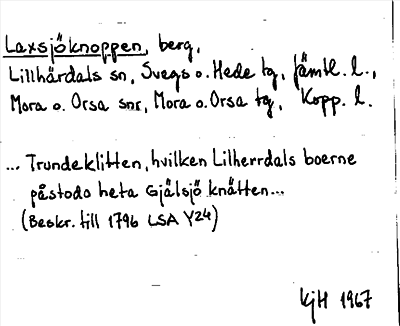 Laxsjöknoppen, berg,
Lillhärdals sn, Svegs o. Hede tg, Jämtl. l.,
Mora o. Orsa snr, Mora o. Orsa tg, Kopp. l.
... Trundeklitten, hvilken Lilherrdals boerne
påstodo heta Gjälsjö knätten...
(Beskr. till 1796 LSA Y24)
KjH 1967